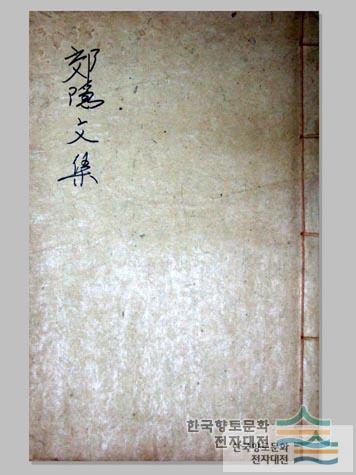 郊隱文集
한국향토문화
전자대전
한국향토문화
전자대전